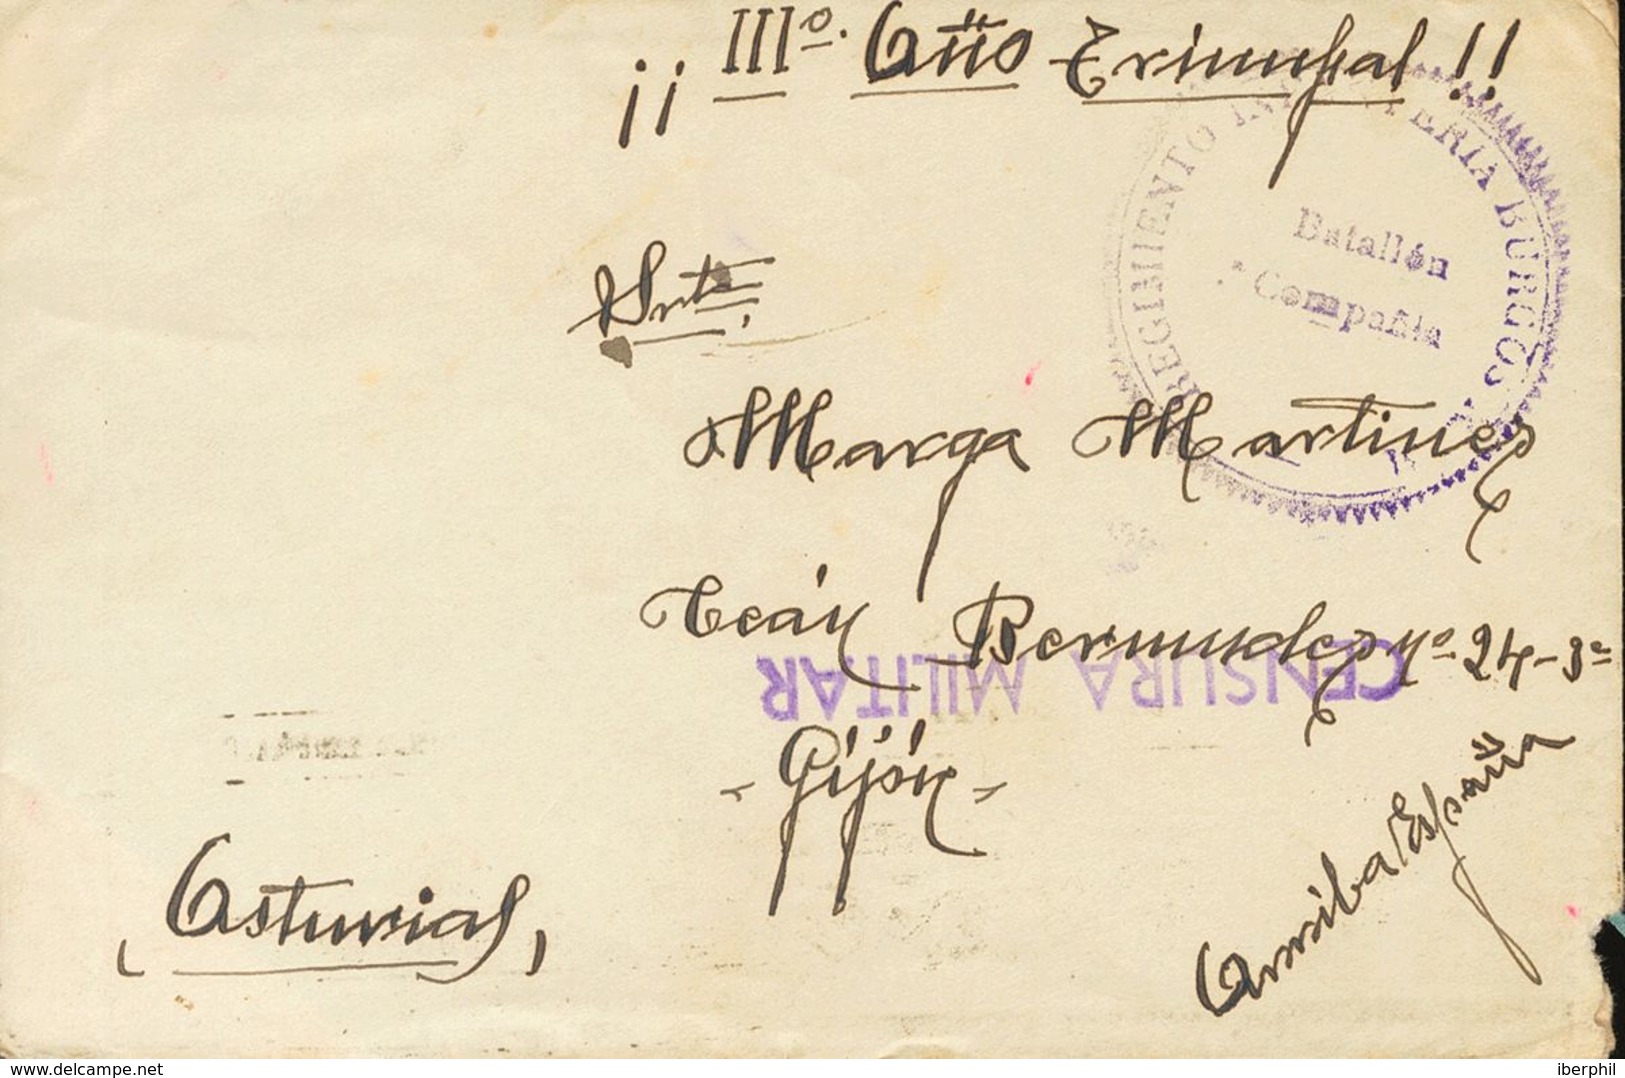 ¡¡ IIIº. Año Triunfal !!
REGIMIENTO INFANTERIA BURGOS
Batallón
Compañia
Srta.
Marga Martines
Ceán Bermudes nº 24-3º
CENSURA MILITAR
- Gijón -
(Asturias)
Arriba España
www.delcampe.net
iberphil